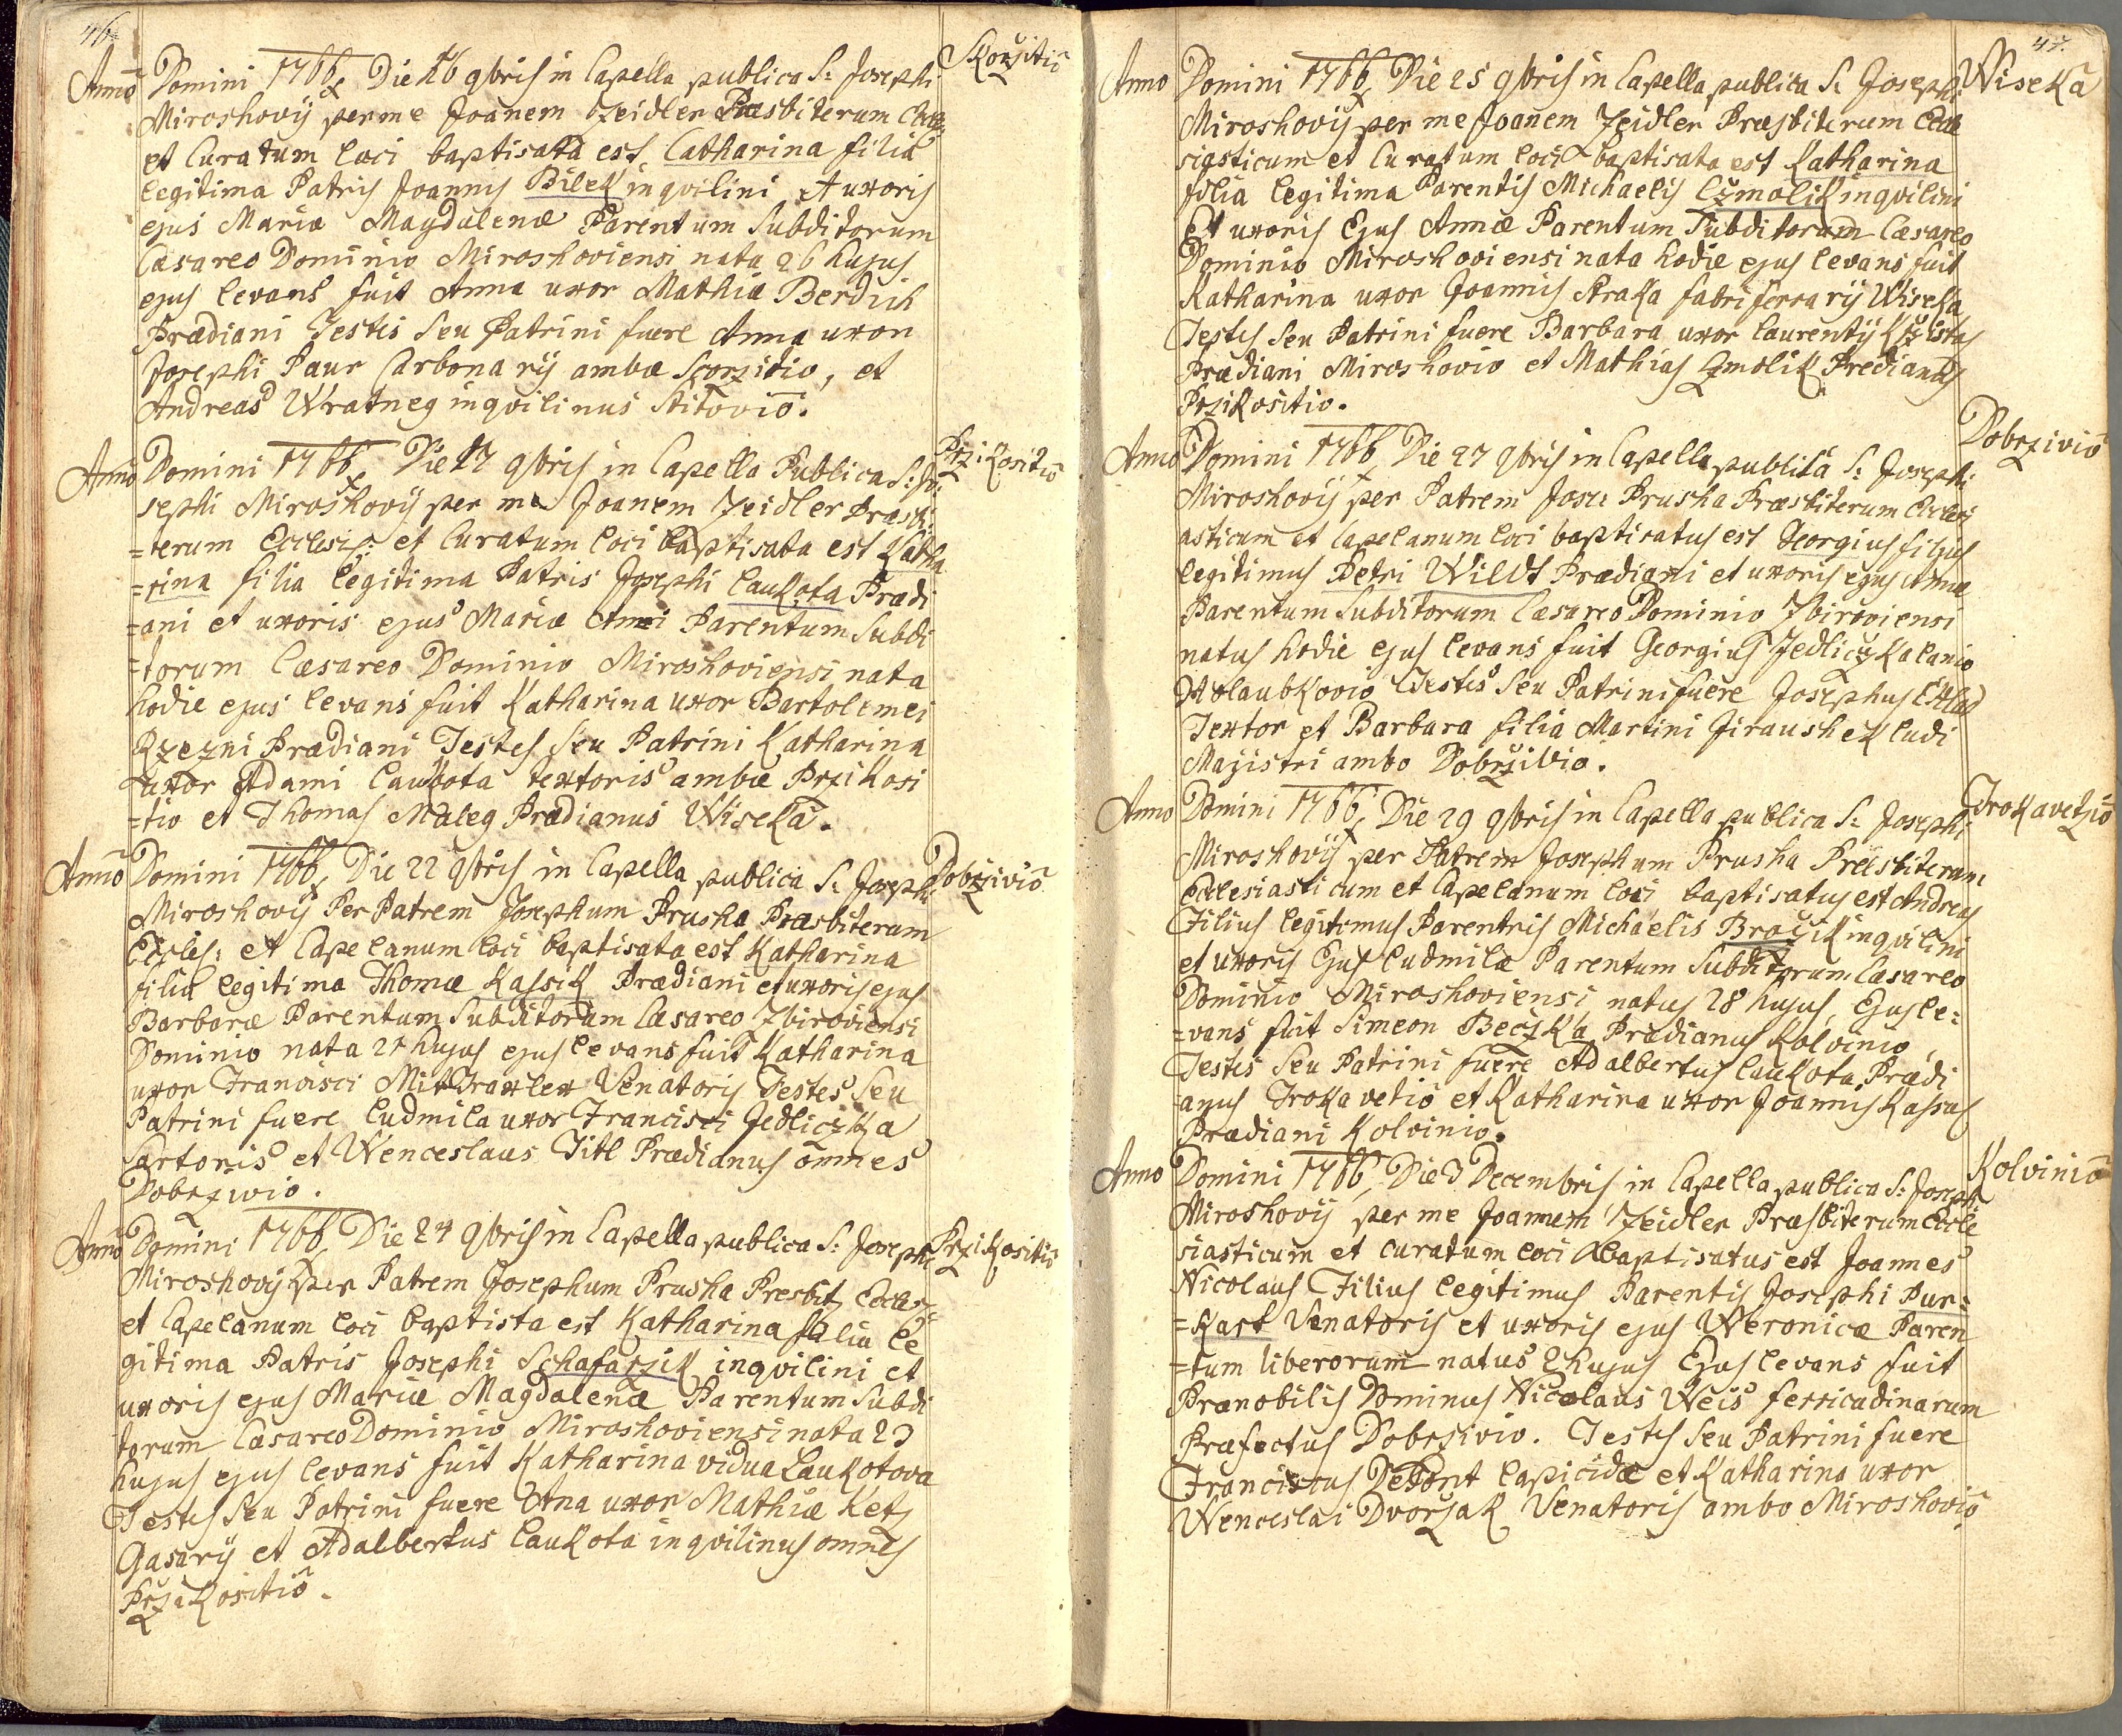 46
Skorzitio
Anno Domini 1766 Die 16 9bris in Capella publica S: Josephi
Miroshovij per me Joanem Zeidler Præsbiterum
et Curatum loci baptisata est Catharina filia
legitima Patris Joannis Bilek inqvilini et uxoris
ejus Mariæ Magdalenæ Parentum Subditorum
Cæsareo Dominio Miroshoviensi nata 26 hujus
ejus levans fuit Anna uxor Mathiæ Berdich
Prædiani Testis seu Patrini fuere Anna uxor
Josephi Paur Carbonarij ambæ Scorzitio, et
Andreas Wratneg inqvilinus Stitovio.
Przikositio
Anno Domini 1766 Die 17 9bris in Capella Publica S: Jo:
sephi Miroshovij per me Joanem Zeidler Præsbi
=terum Ecclesi: et Curatum loci baptisata est Katha
=rina filia legitima Patris Josephi Laukota Prædi
=ani et uxoris ejus Mariæ Parentum Subdi
=torum Cæsareo Dominio Miroshoviensi nata
hodie ejus levans fuit Katharina uxor Bartolemei
Rzezni Prædiani Testes seu Patrini Katharina
uxor Adami Laukota textoris ambæ Przikosi
=tio et Thomas Maleg Prædianus Wiseka.
Dobrzivio
Anno Domini 1766 Die 22 9bris in Capella publica S: Josephi
Miroshovij Per Patrem Josephum Prusha Præsbiterum
Eccles: et Capelanum loci baptisata est Katharina
filia legitima Thomæ Kassik Prædiani et uxoris ejus
Barbaræ Parentum Subditorum Cæsareo Zbiroviensi
Dominio nata 21 hujus ejus levans fuit Katharina
uxor Francisci Venatoris Testes Seu
Patrini fuere Ludmila uxor Francisci Jedliczka
Sartoris et Wenceslaus Titl Prædianus omnes
Dobrzivio.
Przikositio
Anno Domini 1766 Die 24 9bris in Capella publica S: Josephi
Miroshovij per Patrem Josephum Prusha Presbit Eccles:
et Capelanum loci baptista est Katharina filia le
gitima Patris Josephi Schafarzik inqvilini et
uxoris ejus Mariæ Magdalenæ Parentum Subdi
torum Cæsareo Dominio Miroshoviensi nata 23
hujus ejus levans fuit Katharina vidua Laukotova
Testes seu Patrini fuere Ana uxor Mathiæ Ketz
Gasarij et Adalbertus Laukota inqvilinus omnes
Przikositio.
47.
Wiseka
Anno Domini 1766 Die 25 9bris in Capella publica S: Josephi
Miroshovij per me Joanem Zeidler Præsbiterum Eccle
siasticum et Curatum loci baptisata est Katharina
filia legitima Parentis Michaelis Czmolik inqvilini
Et uxoris Ejus Annæ Parentum Subditorum Cæsareo
Dominio Miroshoviensi nata hodie ejus levans fuit
Katharina uxor Joannis Straka fabri ferrarij Wiseka
Testes seu Patrini fuere Barbara uxor Laurentij Krzistas
Prædiani Miroshovio et Mathias Czmolik Predianus
Przikositio.
Dobrzivio
Anno Domini 1766 Die 27 9bris in Capella publica S: Josephi
Miroshovij per Patrem Jose: Prusha Præsbiterum Ecclesi
asticum et Capelanum loci baptisatus est Georgius filius
legitimus Petri Wildt Prædiani et uxoris ejus Annæ
Parentum Subditorum Cæsareo Dominio Zbiroviensi
natus hodie ejus levans fuit Georgius Jedliczka lanio
Testis seu Patrini fuere Josephus
Textor et Barbara filia Martini Jiraushek ludi
Magistri ambo Dobrzivio.
Trokavetzio
Anno Domini 1766 Die 29 9bris in Capella publica S: Josephi
Miroshovij per Patrem Josephum Prusha Præesbiterum
Ecclesiasticum et Capelanum loci baptisatus est Andreas
Filius legitimus Parentris Michaelis Braczik inqvilini
et uxoris Ejus Ludmilæ Parentum Subditorum Cæsareo
Dominio Miroshoviensi natus 28 hujus, Ejus le:
=vans fuit Simeon Beczka Prædianus Kolvinio
Testis seu Patrini fuere Adalbertus Laukota Prædi
anus Trokavetio et Katharina uxor Joannis Kassas
Prædiani Kolvinio.
Kolvinio
Anno Domini 1766 Die 3 Decembris in Capella publica S: Josephi
Miroshovij per me Joannem Zeidler Præsbiterum Eccle
siasticum et curatum loci baptisatus est Joannes
Nicolaus Filius legitimus Parentis Josephi Pur:
=kart Venatoris et uxoris ejus Weronicæ Paren
=tum liberorum natus 2 hujus Ejus levans fuit
Prænobilis Dominus Nicolaus Weis ferricadinarum
Præfectus Dobrzivio. Testes seu Patrini fuere
Franciscus Depont lapicidæ et Katharina uxor
Wenceslai Dvorzak Venatoris ambo Miroshovio